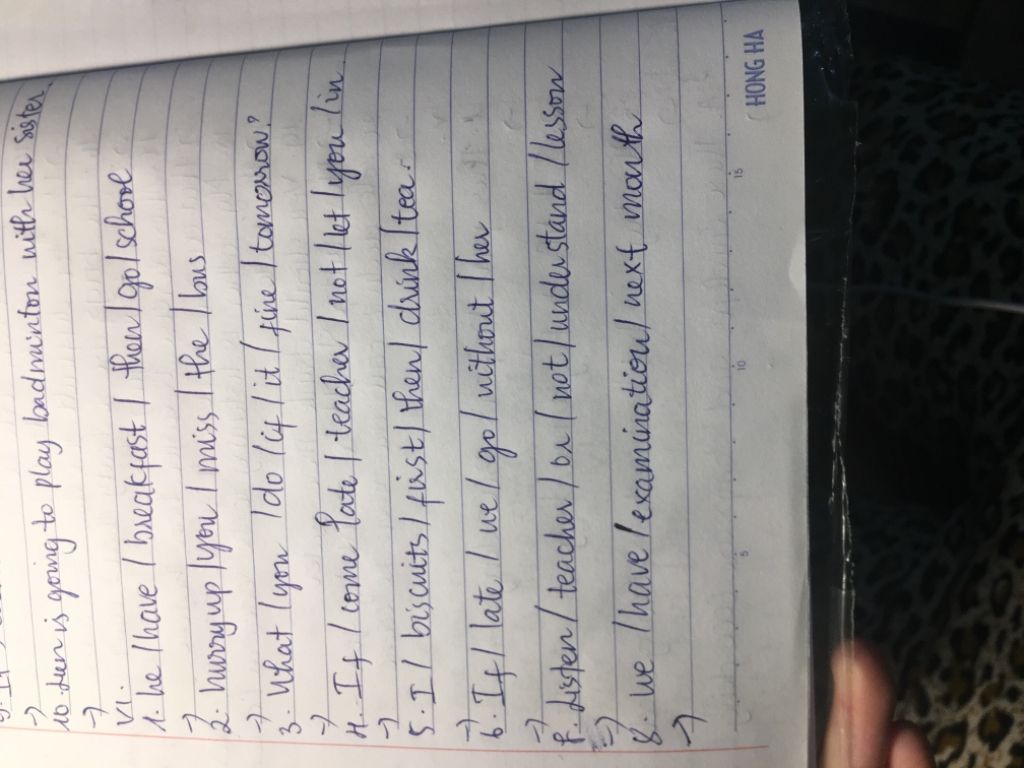 →
10. is going to play badminton with her sister.
→
VI.
1. he / have / breakfast / then / go / school
→
2. hurry up / you / miss / the / bus
→
3. What / you / do / if / it / fine / tomorrow?
→
4. If / come late / teacher / not / let / you / in.
→
5. I / biscuits / first / then / drink / tea.
→
6. If / late / we / go / without / her
→
7. Listen / teacher / or / not / understand / lesson
⇒
8. we / have / examination / next month
→
5 10 15
HONG HA